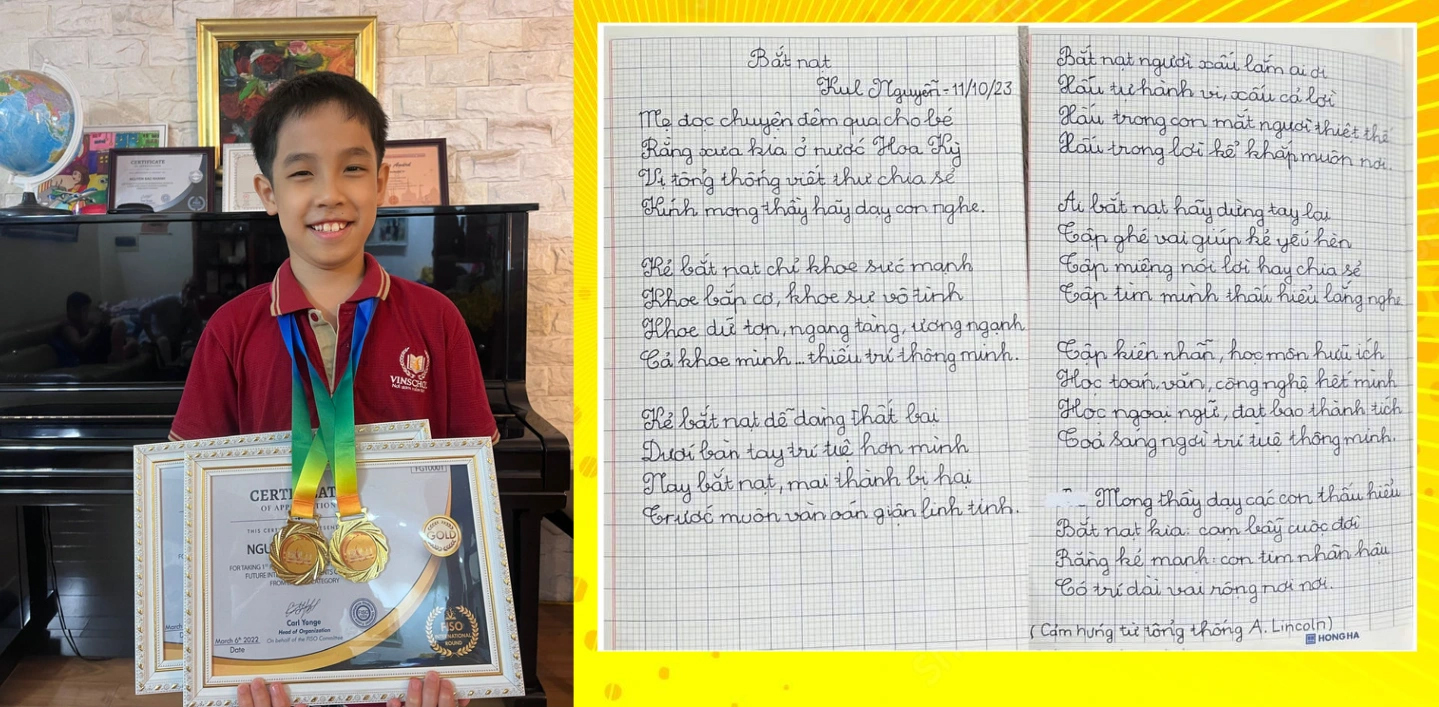 CERTIFICATE
VINSCHOOL
FG10001
CERTIFICAT
OF APPRECIATION
THIS CERT
NGU
FOR TAKING 1
FUTURE INTE
FROM
CATEGORY
GOLD
Carl Yonge
Head of Organization
On behalf of the FISO Committee
March 6th 2022
Date
FISO
INTERNATIONAL
ROUND
March
Bắt nạt
Kul Nguyễn - 11/10/23
Mẹ đọc chuyện đêm qua cho bé
Rằng xưa kia ở nước Hoa Kỳ
Vị tổng thống viết thư chia sẻ
Kính mong thầy hãy dạy con nghe.
Kẻ bắt nạt chỉ khoe sức mạnh
Khoe bắp cơ, khoe sự vô tình
Khoe dữ tợn, ngang tàng, ương ngạnh
Cả khoe mình... thiếu trí thông minh.
Kẻ bắt nạt dễ dàng thất bại
Dưới bàn tay trí tuệ hơn mình
Nay bắt nạt, mai thành bị hại
Trước muôn vàn oán giận linh tinh.
Bắt nạt người xấu lắm ai ơi
Xấu từ hành vi, xấu cả lời
Xấu trong con mắt người thiệt thế
Xấu trong lời kể khắp muôn nơi.
Ai bắt nạt hãy dừng tay lại
Tập ghé vai giúp kẻ yếu hèn
Tập miệng nói lời hay chia sẻ
Tập tim mình thấu hiểu lắng nghe
Tập kiên nhẫn, học môn hữu ích
Học toán, văn, công nghệ hết mình
Học ngoại ngữ, đạt bao thành tích
Toả sáng ngời trí tuệ thông minh.
Mong thầy dạy các con thấu hiểu
Bắt nạt kia: cạm bẫy cuộc đời
Rằng kẻ mạnh: con tim nhân hậu
Có trí dài vai rộng nơi nơi.
(Cảm hứng từ tổng thống A. Lincoln)
HONG HA